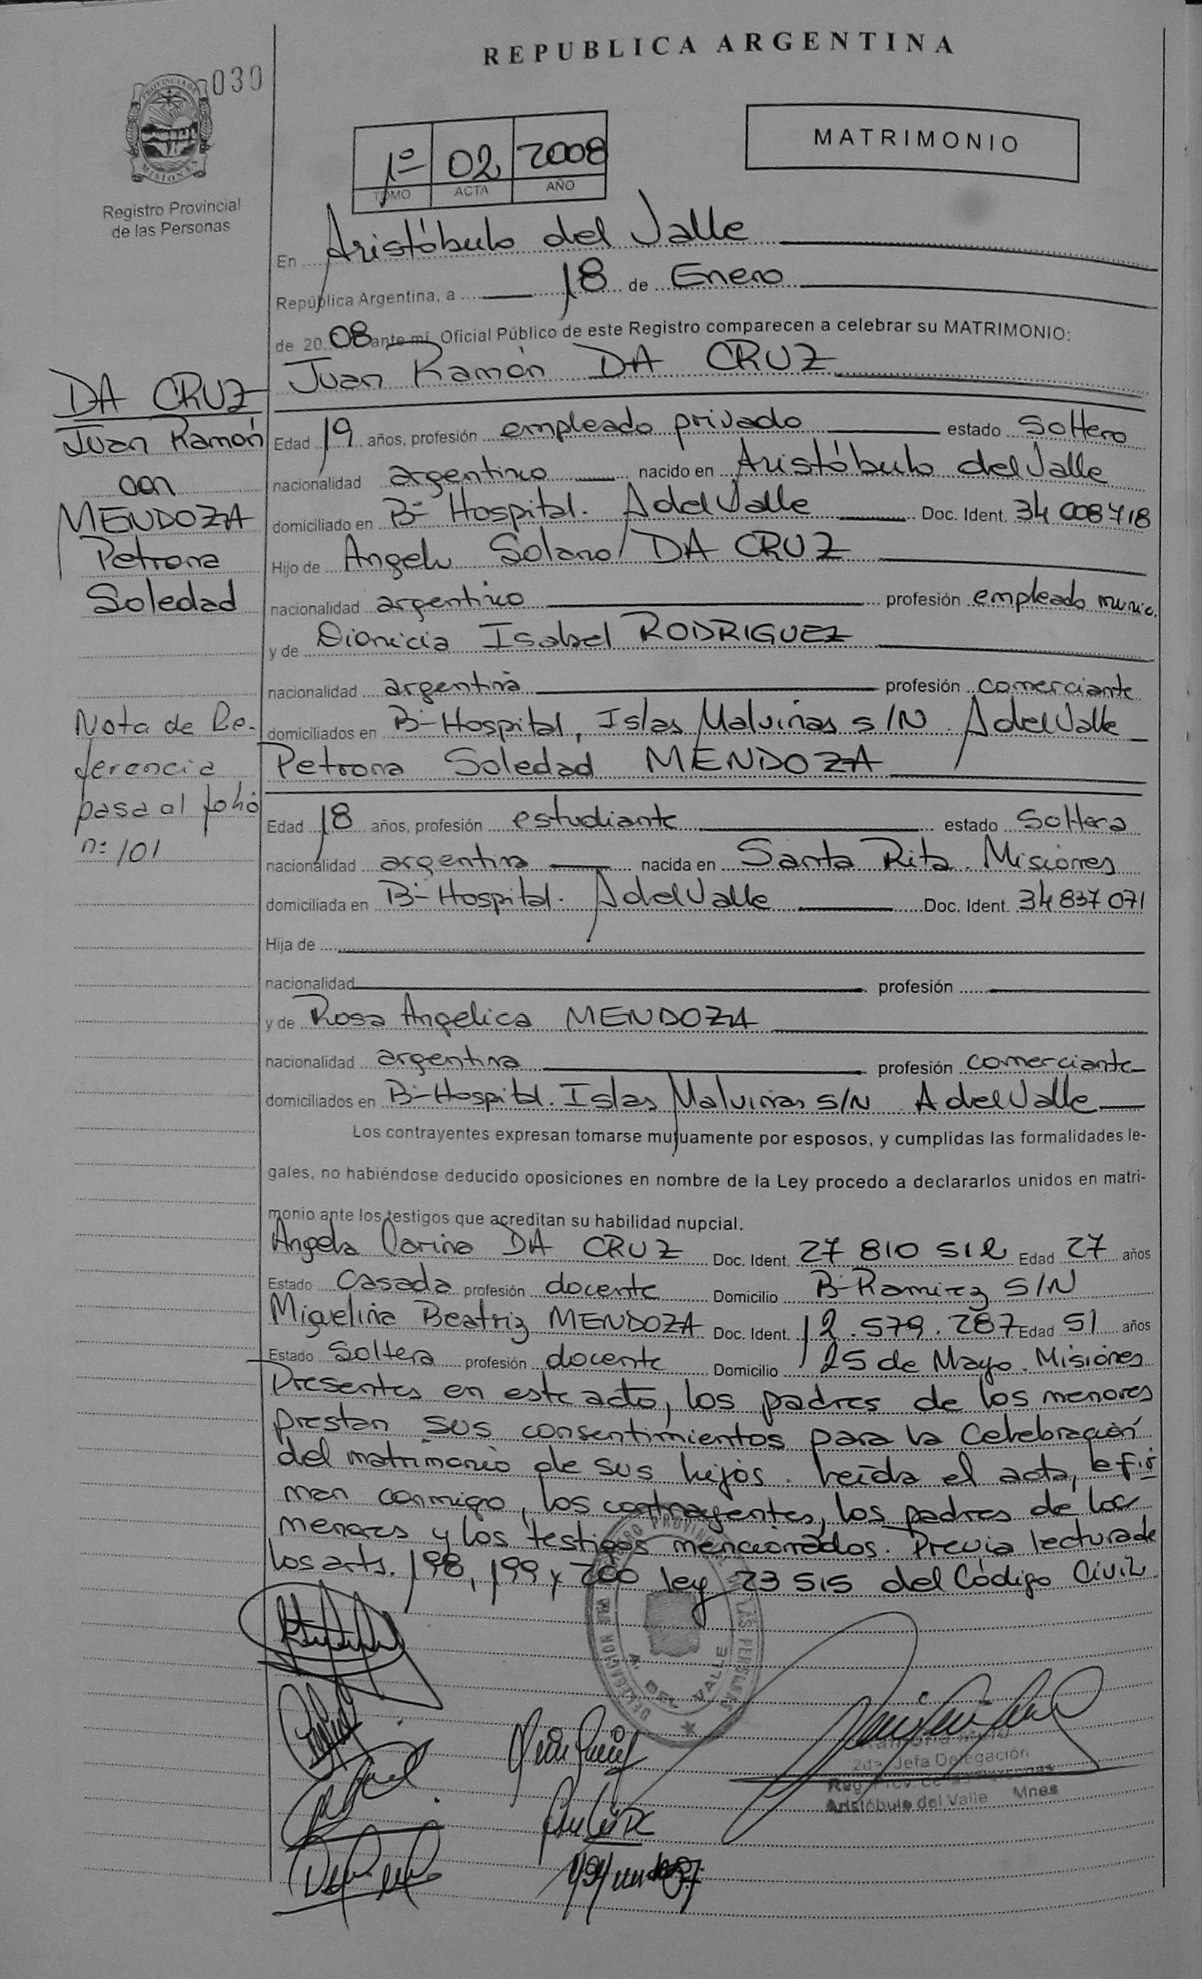 REPUBLICA ARGENTINA
030
PROVINCIA DE MISIONES
Registro Provincial
de las Personas
1º 02 2008
TOMO ACTA AÑO
MATRIMONIO
En Aristóbulo del Valle
República Argentina, a 18 de Enero
de 2008 ante mí, Oficial Público de este Registro comparecen a celebrar su MATRIMONIO:
Juan Ramón DA CRUZ
DA CRUZ
Juan Ramón
con
MENDOZA
Petrona
Soledad
Nota de Re-
ferencia
pasa al folio
nº 101
Edad 19 años, profesión empleado privado estado Soltero
nacionalidad argentino nacido en Aristóbulo del Valle
domiciliado en Bº Hospital. A del Valle Doc. Ident. 34 008 718
Hijo de Angelu Solano DA CRUZ
nacionalidad argentino profesión empleado munic.
y de Dionicia Isabel RODRIGUEZ
nacionalidad argentina profesión comerciante
domiciliados en Bº Hospital, Islas Malvinas s/N. A del Valle
Petrona Soledad MENDOZA
Edad 18 años, profesión estudiante estado Soltera
nacionalidad argentina nacida en Santa Rita. Misiones
domiciliada en Bº Hospital. A del Valle Doc. Ident. 34 837 071
Hija de
nacionalidad profesión
y de Rosa Angelica MENDOZA
nacionalidad argentina profesión comerciante
domiciliados en Bº Hospital. Islas Malvinas s/N A del Valle
Los contrayentes expresan tomarse mutuamente por esposos, y cumplidas las formalidades le-
gales, no habiéndose deducido oposiciones en nombre de la Ley procedo a declararlos unidos en matri-
monio ante los testigos que acreditan su habilidad nupcial.
Angela Carina DA CRUZ Doc. Ident. 27 810 512 Edad 27 años
Estado Casada profesión docente Domicilio Bº Ramirez S/N
Miguelina Beatriz MENDOZA Doc. Ident. 12.579.287 Edad 51 años
Estado Soltera profesión docente Domicilio 25 de Mayo. Misiones
Presentes en este acto, los padres de los menores
prestan sus consentimientos para la Celebración
del matrimonio de sus hijos. Leída el acta, la fir
man conmigo, los contrayentes, los padres de los
menores y los testigos mencionados. Previa lectura de
los arts. 198, 199 y 200 ley 23 515 del Código Civil.
REGISTRO PROVINCIAL DE LAS PERSONAS
DELEGACION
A. DEL VALLE
2da. Jefa Delegación
Reg. Prov. de las Personas
Aristóbulo del Valle Mnes